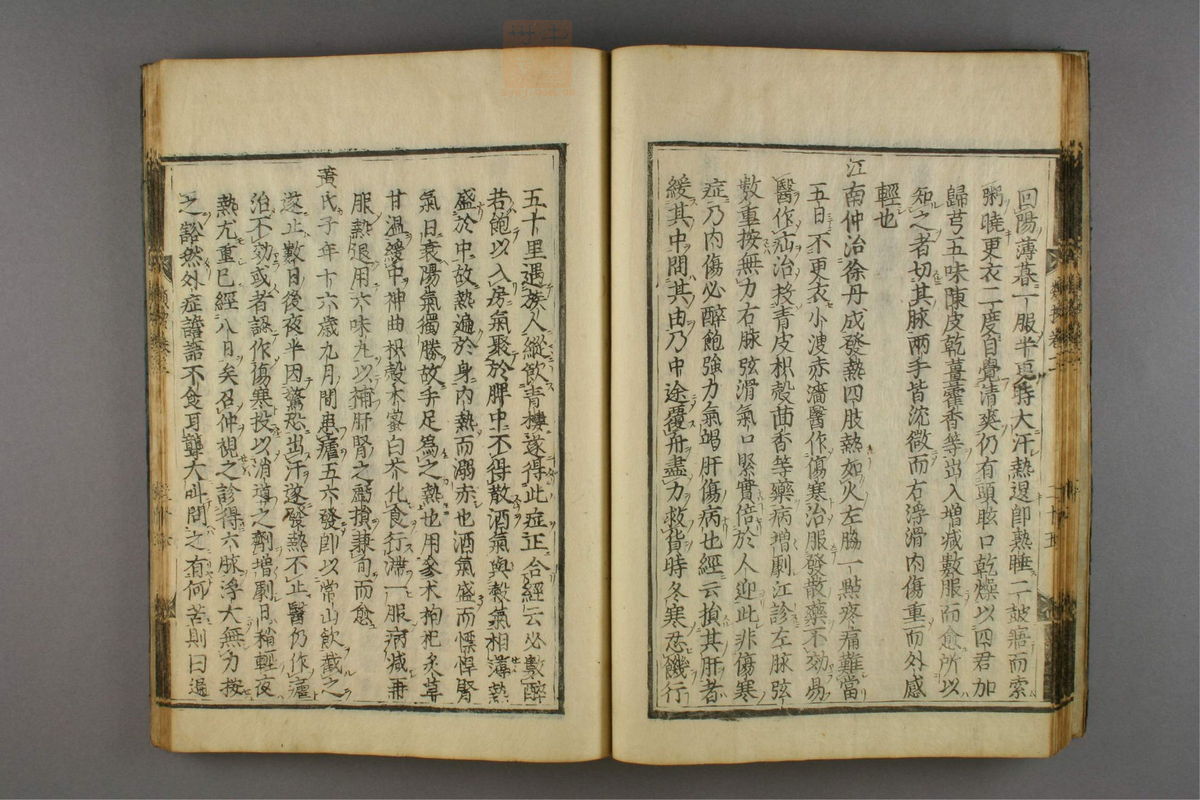 回陽薄暮一服半更時大汗熱退卽熱睡二皷寤而索
粥曉更衣二度自覺清爽仍有頭眩口乾燥以四君加
歸芎五味陳皮乾薑藿香等出入增减數服而愈所以
知之者切其脉兩手皆沈微而右浮滑內傷重而外感
輕也
江南仲治徐丹成發熱四肢熱如火左脇一點疼痛難當
五日不更衣小溲赤濇醫作傷寒治服發散藥不効易
醫作疝治投青皮枳殼茴香等藥病增劇江診左脉弦
數重按無力右脉弦滑氣口緊實倍於人迎此非傷寒
症乃內傷必醉飽強力氣竭肝傷病也經云損其肝者
緩其中問其由乃中途覆舟盡力救貨時冬寒忍饑行
五十里遇族人縱飲青樓遂得此症正合經云必數醉
若飽以入房氣聚於脾中不得散酒氣與穀氣相薄熱
盛於中故熱遍於身內熱而溺赤也酒氣盛而慓悍腎
氣日衰陽氣獨勝故手足爲之熱也用參术枸杞炙草
甘溫緩中神曲枳殼木蜜白芥化食行滯一服病减再
服熱退用六味丸以補肝腎之虧損兼旬而愈
黃氏子年十六歲九月間患瘧五六發卽以常山飲截之
遂止數日後夜半因驚恐出汗遂發熱不止醫仍作瘧
治不効或者認作傷寒投以消導之劑增劇日稍輕夜
熱尤重已經八日矣召仲視之診得六脉浮大無力按
之豁然外症譫語不食耳聾大呌問之有何苦則曰遍